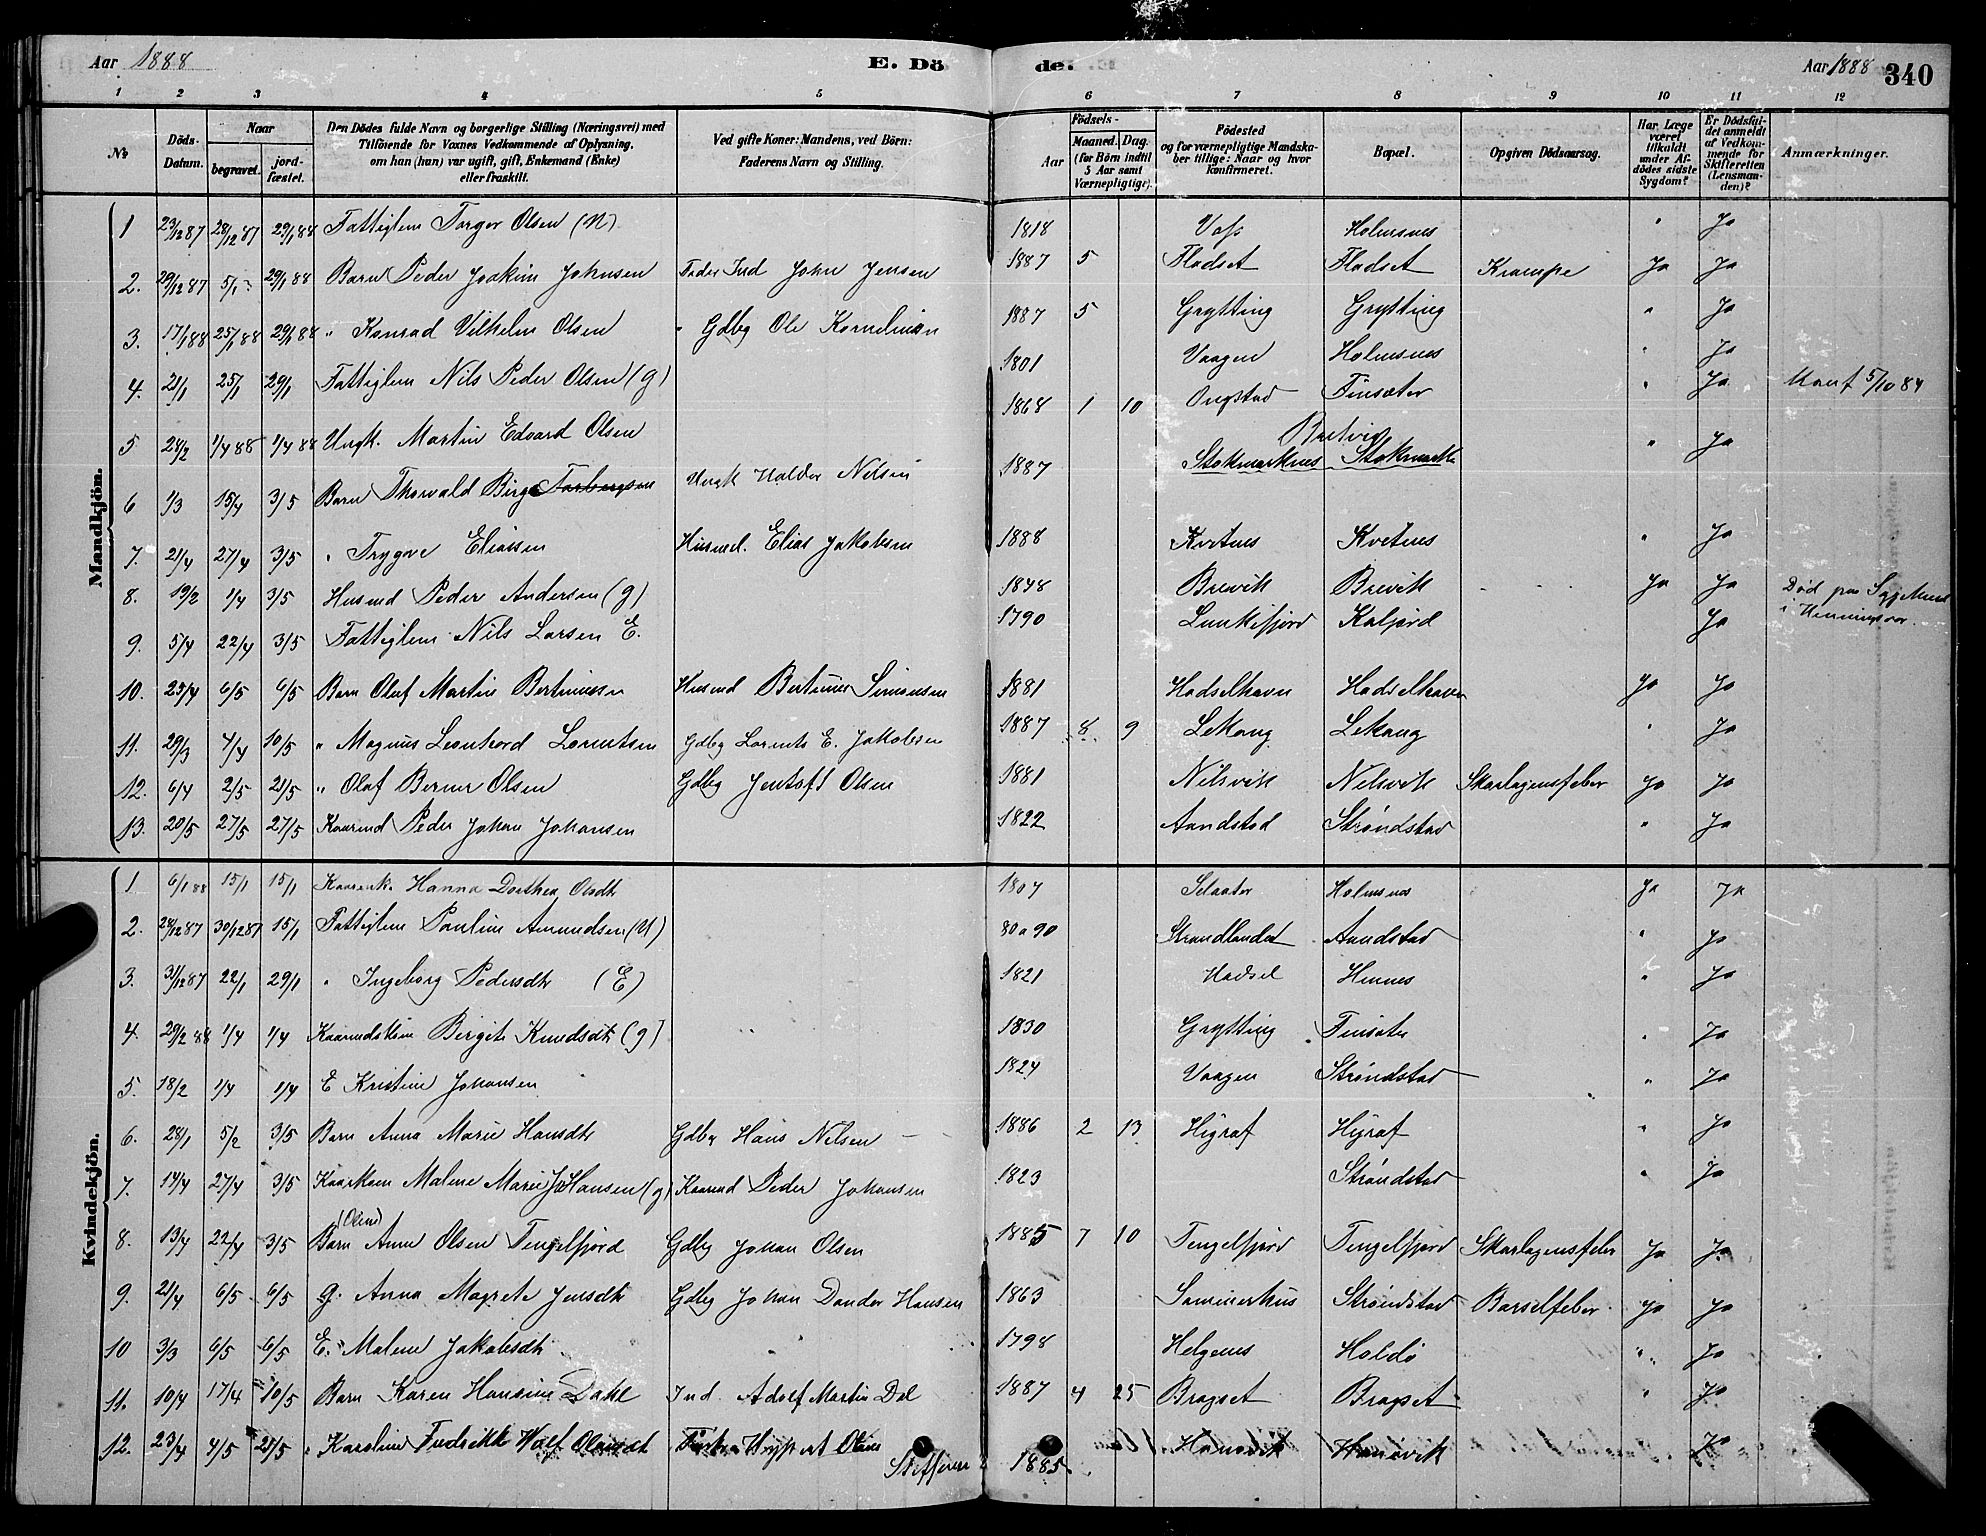 Aar 1888
E. Dö
de.
Aar 1888
340
1 2 3 4 5 6 7 8 9 10 11 12
No
Döds-Datum.
Naar
begravet.
jord-fæstet.
Den Dödes fulde Navn og borgerlige Stilling (Næringsvei) med
Tilföiende for Voxnes Vedkommende af Oplysning,
om han (hun) var ugift, gift, Enkemand (Enke)
eller fraskilt.
Ved gifte Koner: Mandens, ved Börn:
Faderens Navn og Stilling.
Födsels-
Aar
Maaned. Dag.
(for Börn indtil
5 Aar samt
Værnepligtige).
Födested
og for værnepligtige Mandska-
ber tillige: Naar og hvor
konfirmeret.
Bopæl.
Opgiven Dödsaarsag.
Har Læge
været
tilkaldt
under Af-
dödes sidste
Sygdom?
Er Dödsfal-
det anmeldt
af Vedkom-
mende for
Skifteretten
(Lensman-
den)?
Anmærkninger.
Mandkjön.
1 23/12 87 28/12 87 29/1 88 Fattiglem Torger Olsen (U) 1818 Voss Holmsnes " Ja
2. 29/12 87 5/1 29/1 88 Barn Peder Joakim Johnsen Fader Ind John Jensen 1887 5 Fladset Fladset Krampe Ja Ja
3. 17/1 88 25/1 88 29/1 88 " Konrad Vilhelm Olsen " Gdbg Ole Kornelius 1887 5 Grytting Grytting " Ja
4. 21/1 25/1 29/1 Fattiglem Nils Peder Olsen (g) 1801 Vaagen Holmsnes " Ja
5 28/2 1/4 88 1/4 88 Ungk. Martin Edvard Olsen 1868 1 10 Ongstad Finsæter " Ja Konf 5/10 84
6 1/3 15/4 3/5 Barn Thorvald Birge Torbergsen Ungk Haldor Nilsen 1887 Stokmarknes Stokmark " Ja
7. 21/4 27/4 3/5 " Trygve Eliassen Husmd. Elias Jakobsen 1888 Kvitnes Kvitnes " Ja
8. 19/2 1/4 3/5 Husmd Peder Andersen (g) 1848 Brevik Brevik Ja Ja Död paa
9. 5/4 22/4 3/5 Fattiglem Nils Larsen E. 1790 Lunkifjord Kaljord Ja i Henningsvær.
10. 25/4 6/5 6/5 Barn Olaf Martin Bertinussen Husmd Bertinus Simonsen 1881 Hadselhavn Hadselhavn Ja Ja
11. 29/3 4/4 10/5 " Magnus Leonhard Lorentsen Gdbg Lorents E. Jakobsen 1887 8 9 Lekang Lekang " Ja
12. 6/4 2/5 21/5 " Olaf Berner Olsen Gdbg Jentoft Olsen 1881 Nilsvik Nilsvik Skarlagensfeber Ja Ja
13. 20/5 27/5 27/5 Kaarmd Peder Johan Johansen 1822 Aandstad Ströndstad " Ja
Kvindekjön.
1 6/1 88 15/1 15/1 Kaarenke Hanna Dorthea Olsdt 1807 Selaater Holmsnes Ja Ja
2. 28/12 87 30/12 87 15/1 Fattiglem Pauline Amundsen (U) 80 a 90 Strandlandet Aandstad " Ja
3. 31/12 87 22/1 29/1 " Ingeborg Pedersdt (E) 1821 Hadsel Hennes " Ja
4. 29/2 88 1/4 1/4 Kaarmdskone Birgite Knudsdt (g) 1830 Grytting Finsæter " Ja
5. 18/2 1/4 1/4 E Kristine Johansen 1824 Vaagen Ströndstad " Ja
6. 28/1 5/2 3/5 Barn Anna Marie Hansdt Gdbg Hans Nilsen 1886 2 13 Higraf Higraf " Ja
7. 14/4 27/4 3/5 Kaarkone Malene Marie JoHansen (g) Kaarmd Peder Johansen 1823 Ströndstad " Ja
(Oline)
8. 13/4 22/4 3/5 Barn Anne Olsen Tengelfjord Gdbg Johan Olsen 1885 7 10 Tengelfjord Tengelfjord Skarlagensfeber Ja Ja
9. 21/4 6/5 6/5 g. Anna Magrete Jensdt Gdbg Johan Dander Hansen 1863 Sommerhus Ströndstad Barselfeber Ja Ja
10 3/3 6/5 6/5 E. Malene Jakobsdt 1798 Helgenes Holdö " Ja
11. 10/4 17/4 10/5 Barn Karen Hansine Dahl Ind. Adolf Martin Dal 1887 4 25 Bragset Bragset " Ja
12. 23/4 4/5 21/5 " Karoline Fredrikke Olavsdt Olaus Steffensen 1885 Hanøvik Hanøvik Ja